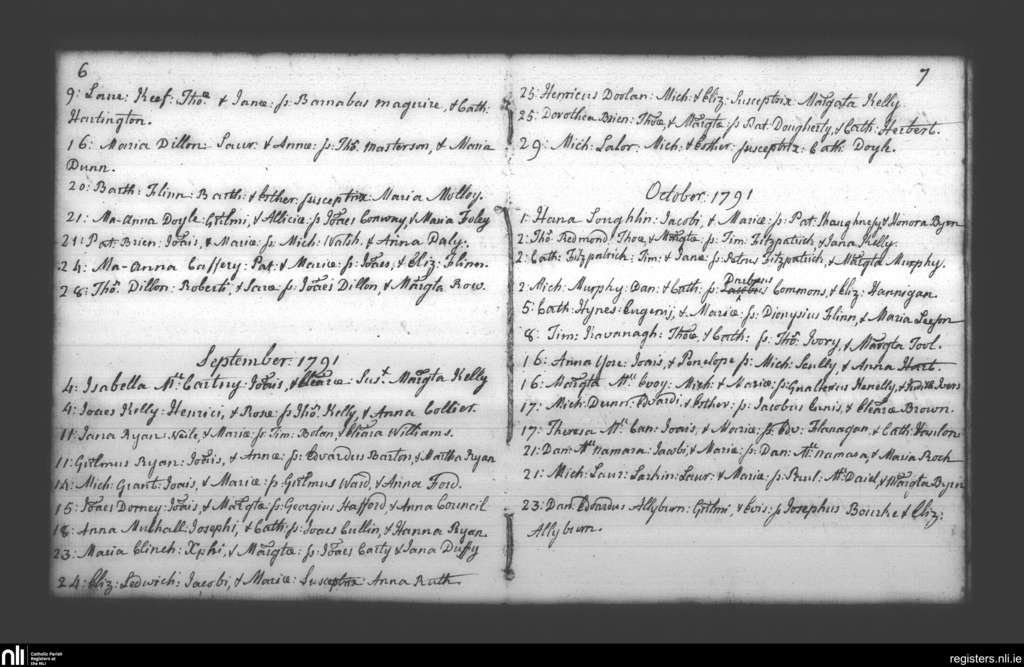 6
9: Laur: Keef: Thoæ & Janæ p: Barnabas Maguire, & Cath:
Hartington.
16: Maria Dillon: Laur: & Annæ: p: Tho: Masterson, & Maria
Dunn.
20: Barth: Flinn: Barth: & Esther: susceptrix Maria Molloy.
21: Ma-Anna Doyle Gulmi, & Alliciæ p: Joaes Conway, & Maria Foley
21: Pat: Brien: Joais, & Mariæ: p: Mich: Walsh, & Anna Daly.
24: Ma-Anna Caffery: Pat: & Mariæ: p: Joaes, & Eliz: Flinn.
28: Tho: Dillon: Roberti, & Saræ p: Joaes Dillon, & Margta Row.
September 1791
4: Isabella Mc Cartny: Joais, & Claræ Sust. Margta Kelly
4: Joaes Kelly: Henrici, & Rosæ p: Tho: Kelly, & Anna Collier.
11: Jana Ryan & Mariæ p: Tim: Bolan, & Cleara Williams.
11: Gulmus Ryan: Joais, & Annæ: p: Edvardus Barton, & Martha Ryan
14: Mich: Grant: Joais, & Mariæ p: Gulmus Ward, & Anna Ford.
15: Joaes Dorney: Joais, & Margtæ p: Georgius Hafford, & Anna Council
18: Anna Mulhall: Josephi, & Cath: p: Joaes Cullin, & Hanna Ryan
23: Maria Clinch: Xphi, & Margtæ: p: Joaes Carty & Jana Duffy
24: Eliz: Ledwich: Jacobi, & Mariæ: Susceptrix Anna Rath.
7
25: Henricus Doolan: Mich: & Eliz: Susceptrix Margata Kelly
25: Dorothea Brien: Thoæ, & Margtæ p: Pat: Dougherty, & Cath: Herbert.
29: Mich: Lalor: Mich: & Esther: susceptrix: Cath: Doyle.
October 1791
1: Hana Loughlin: Jacobi, & Mariæ: p: Pat: Shaughnessy & Honora Byrn
2: Tho: Redmond: Thoæ, & Margtæ: p: Tim: Fitzpatrick, & Jana Kelly.
2: Cath: Fitzpatrick: Tim: & Janæ: p: Petrus Fitzpatrick, & Margta Murphy.
2: Mich: Murphy: Dan: & Cath: p: Commons, & Eliz: Hannigan.
5: Cath: Hynes: Eugenij, & Mariæ: p: Dionysius Flinn, & Maria Leeson
8: Tim: Kavanagh: Thoæ, & Cath: p: Tho: Ivory, & Margta Tool.
16: Anna Gore: Joais, & Penelope p: Mich: Scully, & Anna Hart.
16: Margta Mc Evoy: Mich: & Mariæ: p: Gualterus Kenelly, &
17: Mich: Dunn: Edvardi, & Esther: p: Jacobus Ennis, & Cleara Brown.
17: Theresa Mc Can: Joais, & Mariæ: p: Edv: Flanagan, & Cath: Hanlon
21: Dan: Mc Namara: Jacobi, & Mariæ: p: Dan: Mc Namara, & Maria Roch
21: Mich: Laur: Larkin: Laur: & Mariæ: p: Paul: Mc Daid, & Margta Byrn
23: Dan: Edvardus Allyburn: Gulmi, & Evis: p: Josephus Bourke & Eliz:
Allyburn.
nli
Catholic Parish
Registers at
the NLI
registers.nli.ie